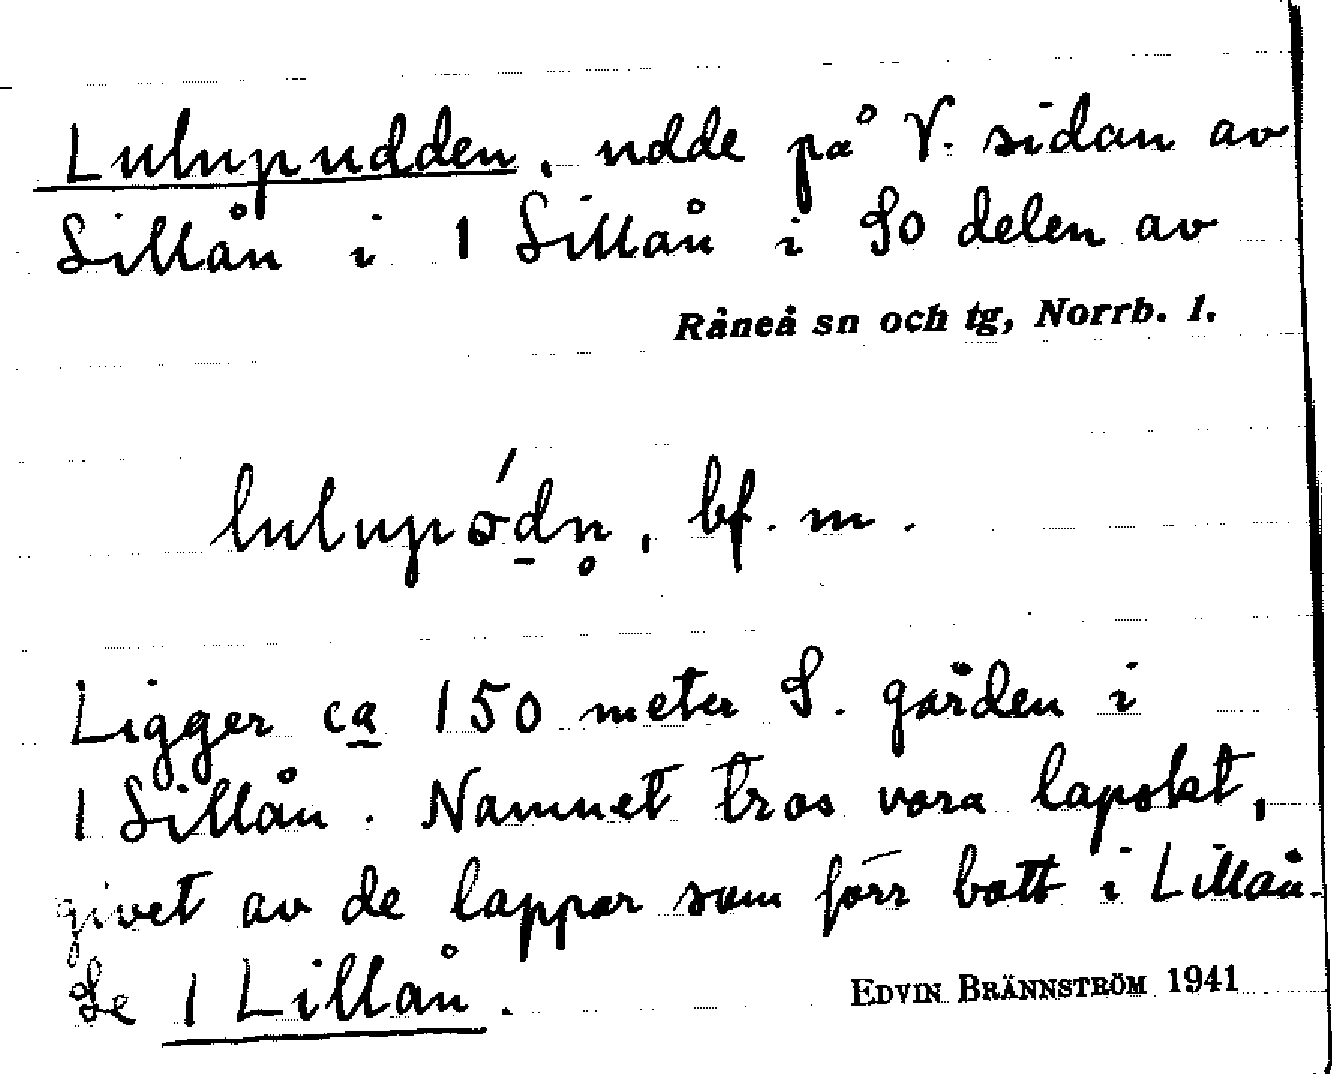 Lulupudden, udde på V. sidan av
Lillån i 1 Lillån i SO delen av
Råneå sn och tg, Norrb. l.
lulupɷ́dn̥, bf. m.
Ligger ca 150 meter S. gården i
1 Lillån. Namnet tros vara lapskt,
givet av de lappar som förr bott i Lillån.
Se 1 Lillån.
EDVIN BRÄNNSTRÖM 1941